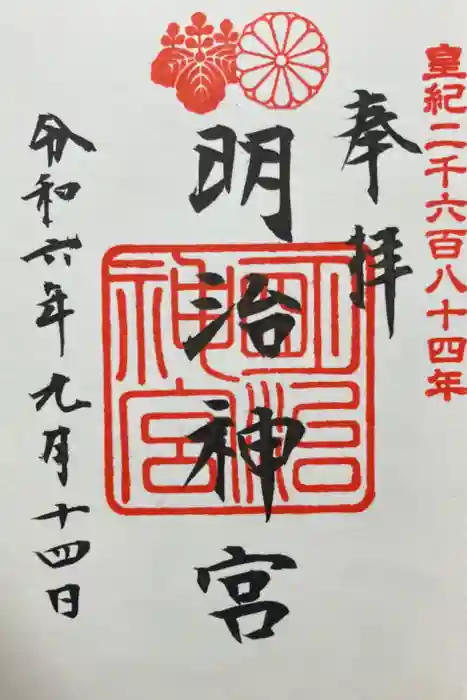 皇紀二千六百八十四年
奉拝
明治神宮
明治神宮
令和六年九月十四日